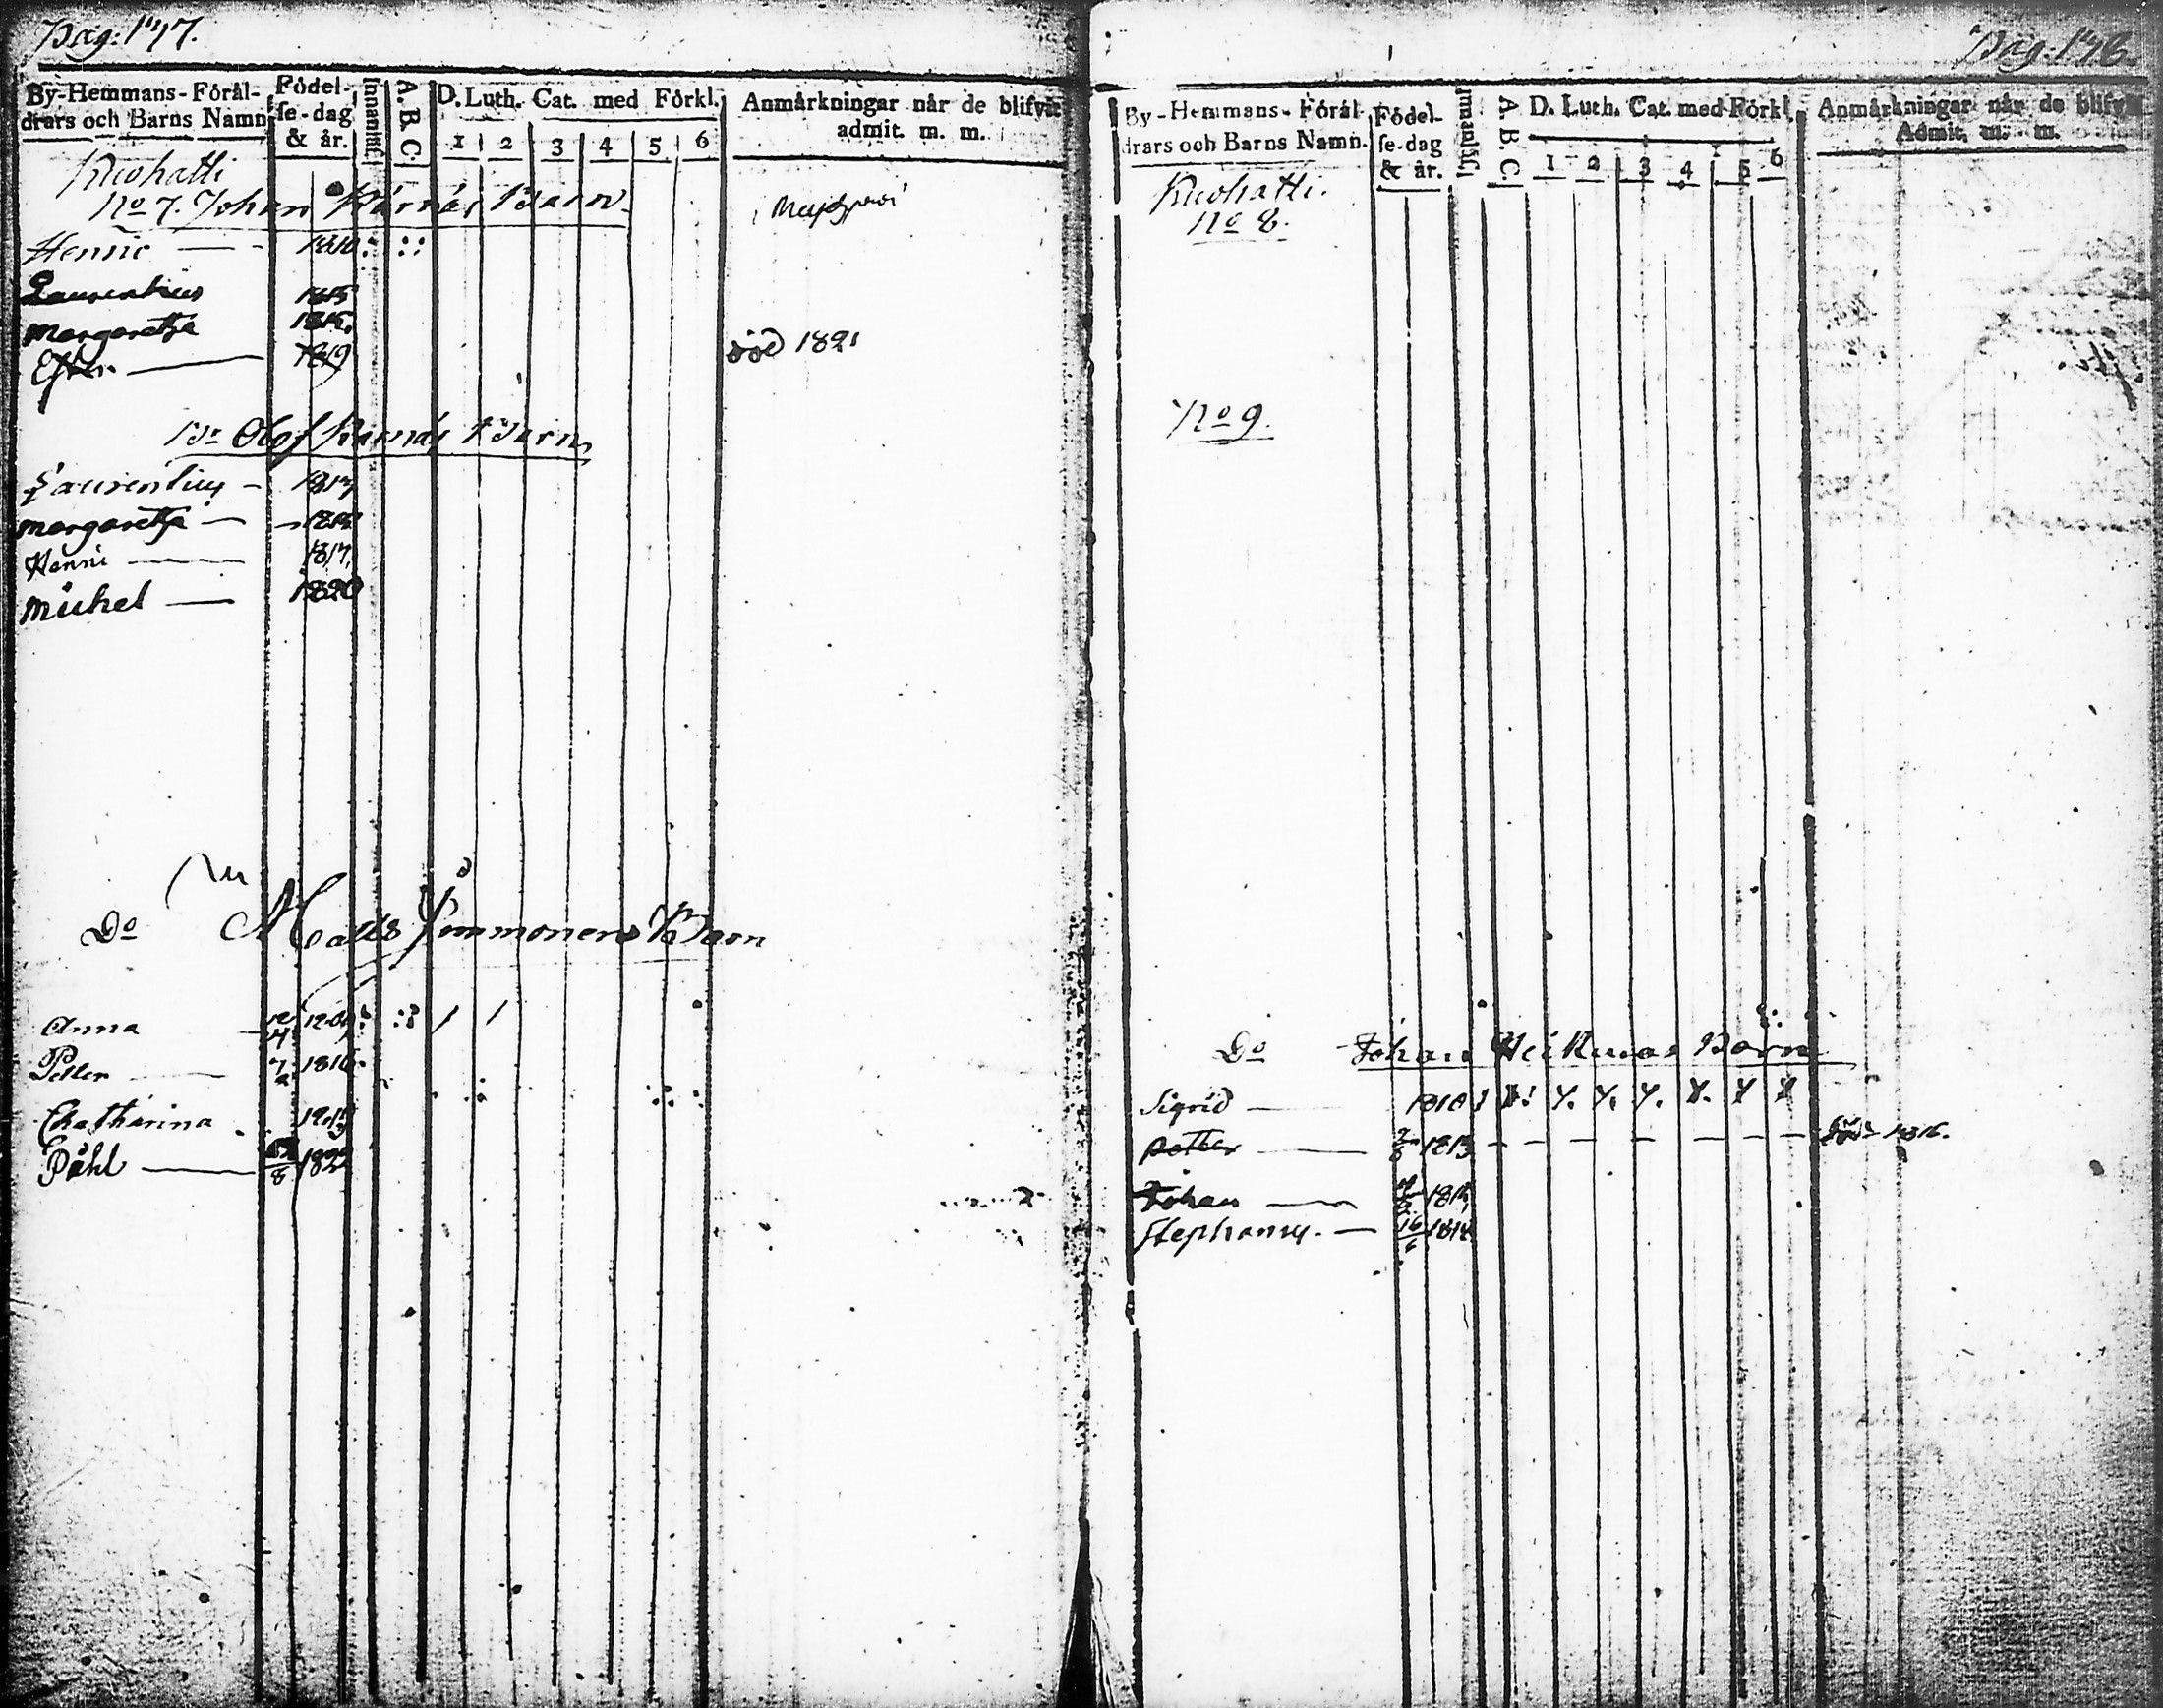 Pag: 177.
By-Hemmans-Föräl-
drars och Barns Namn
Födel-
se-dag
& år.
Innanläs.
A. B. C.
D. Luth. Cat. med Förkl.
1 2 3 4 5 6
Anmärkningar når de blifvit
admit. m. m.
Kuohatti
No 7. Johan Kärnäs Barn
Henric — 1810
Laurentius 1815
Margaretha
Esther — 1819 död 1821
Olof Kärnäs Barn
Laurentius —
Margaretha —
Henric — 1817
Michel — 1820
Do Matts Timmonens Barn
Anna 12/4
Petter — 1816
Chatharina 1819
Påhl — 1822
Pag: 178.
By-Hemmans-Föräl-
drars och Barns Namn.
Födel-
se-dag
& år.
Innanläs.
A. B. C.
D. Luth. Cat. med Förkl.
1 2 3 4 5 6
Anmärkningar når de blifvit
Admit. m. m.
Kuohatti.
No 8.
No 9.
Do Johan Heikuras Barn
Sigrid — 1810
Petter — 1813 död 1816.
Johan —
Stephanus. — 16/6 1818